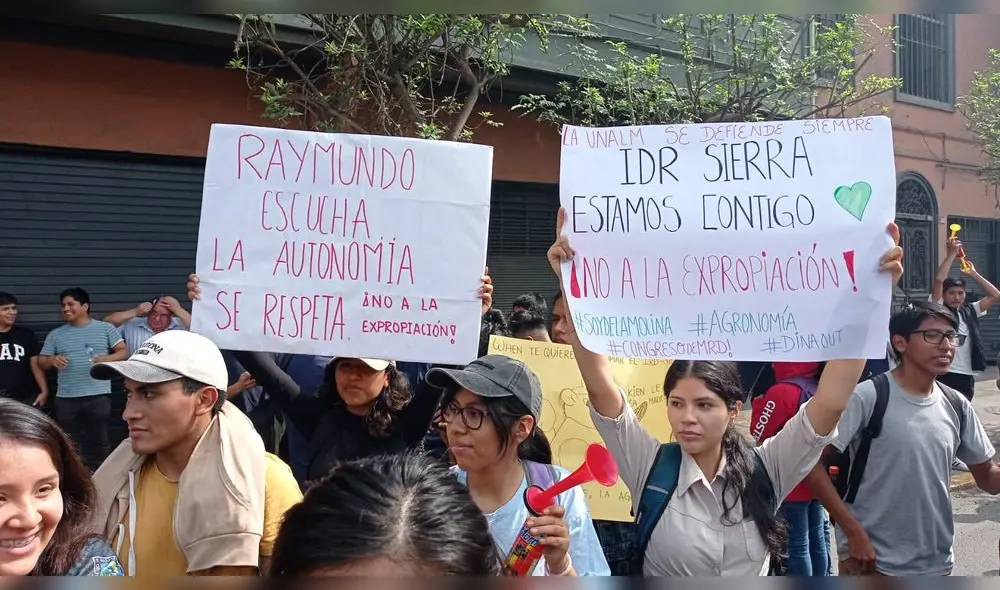 RAYMUNDO
ESCUCHA
LA AUTONOMÍA
SE RESPETA.
¡NO A LA
EXPROPIACIÓN!
LA UNALM SE DEFIENDE SIEMPRE
IDR SIERRA
ESTAMOS CONTIGO
¡NO A LA EXPROPIACIÓN!
#SOYDELAMOLINA #AGRONOMÍA
#CONGRESODEMRD! #DINAOUT
WHEN TE QUIEREN